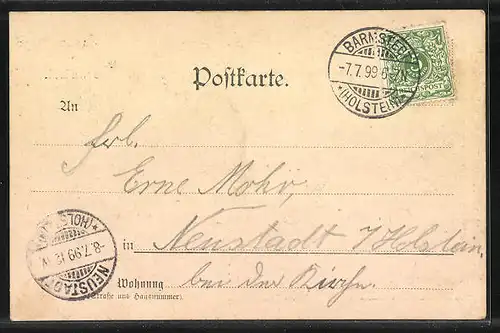 BARMSTEDT
-7.7.99 6-7N
*(HOLSTEIN)*
Postkarte.
An
Frl.
Erne Mohr,
in Neustadt i/Holstein.
Wohnung bei der Kirche.
(Straße und Hausnummer)
NEUSTADT
-8.7.99
*(HOLST